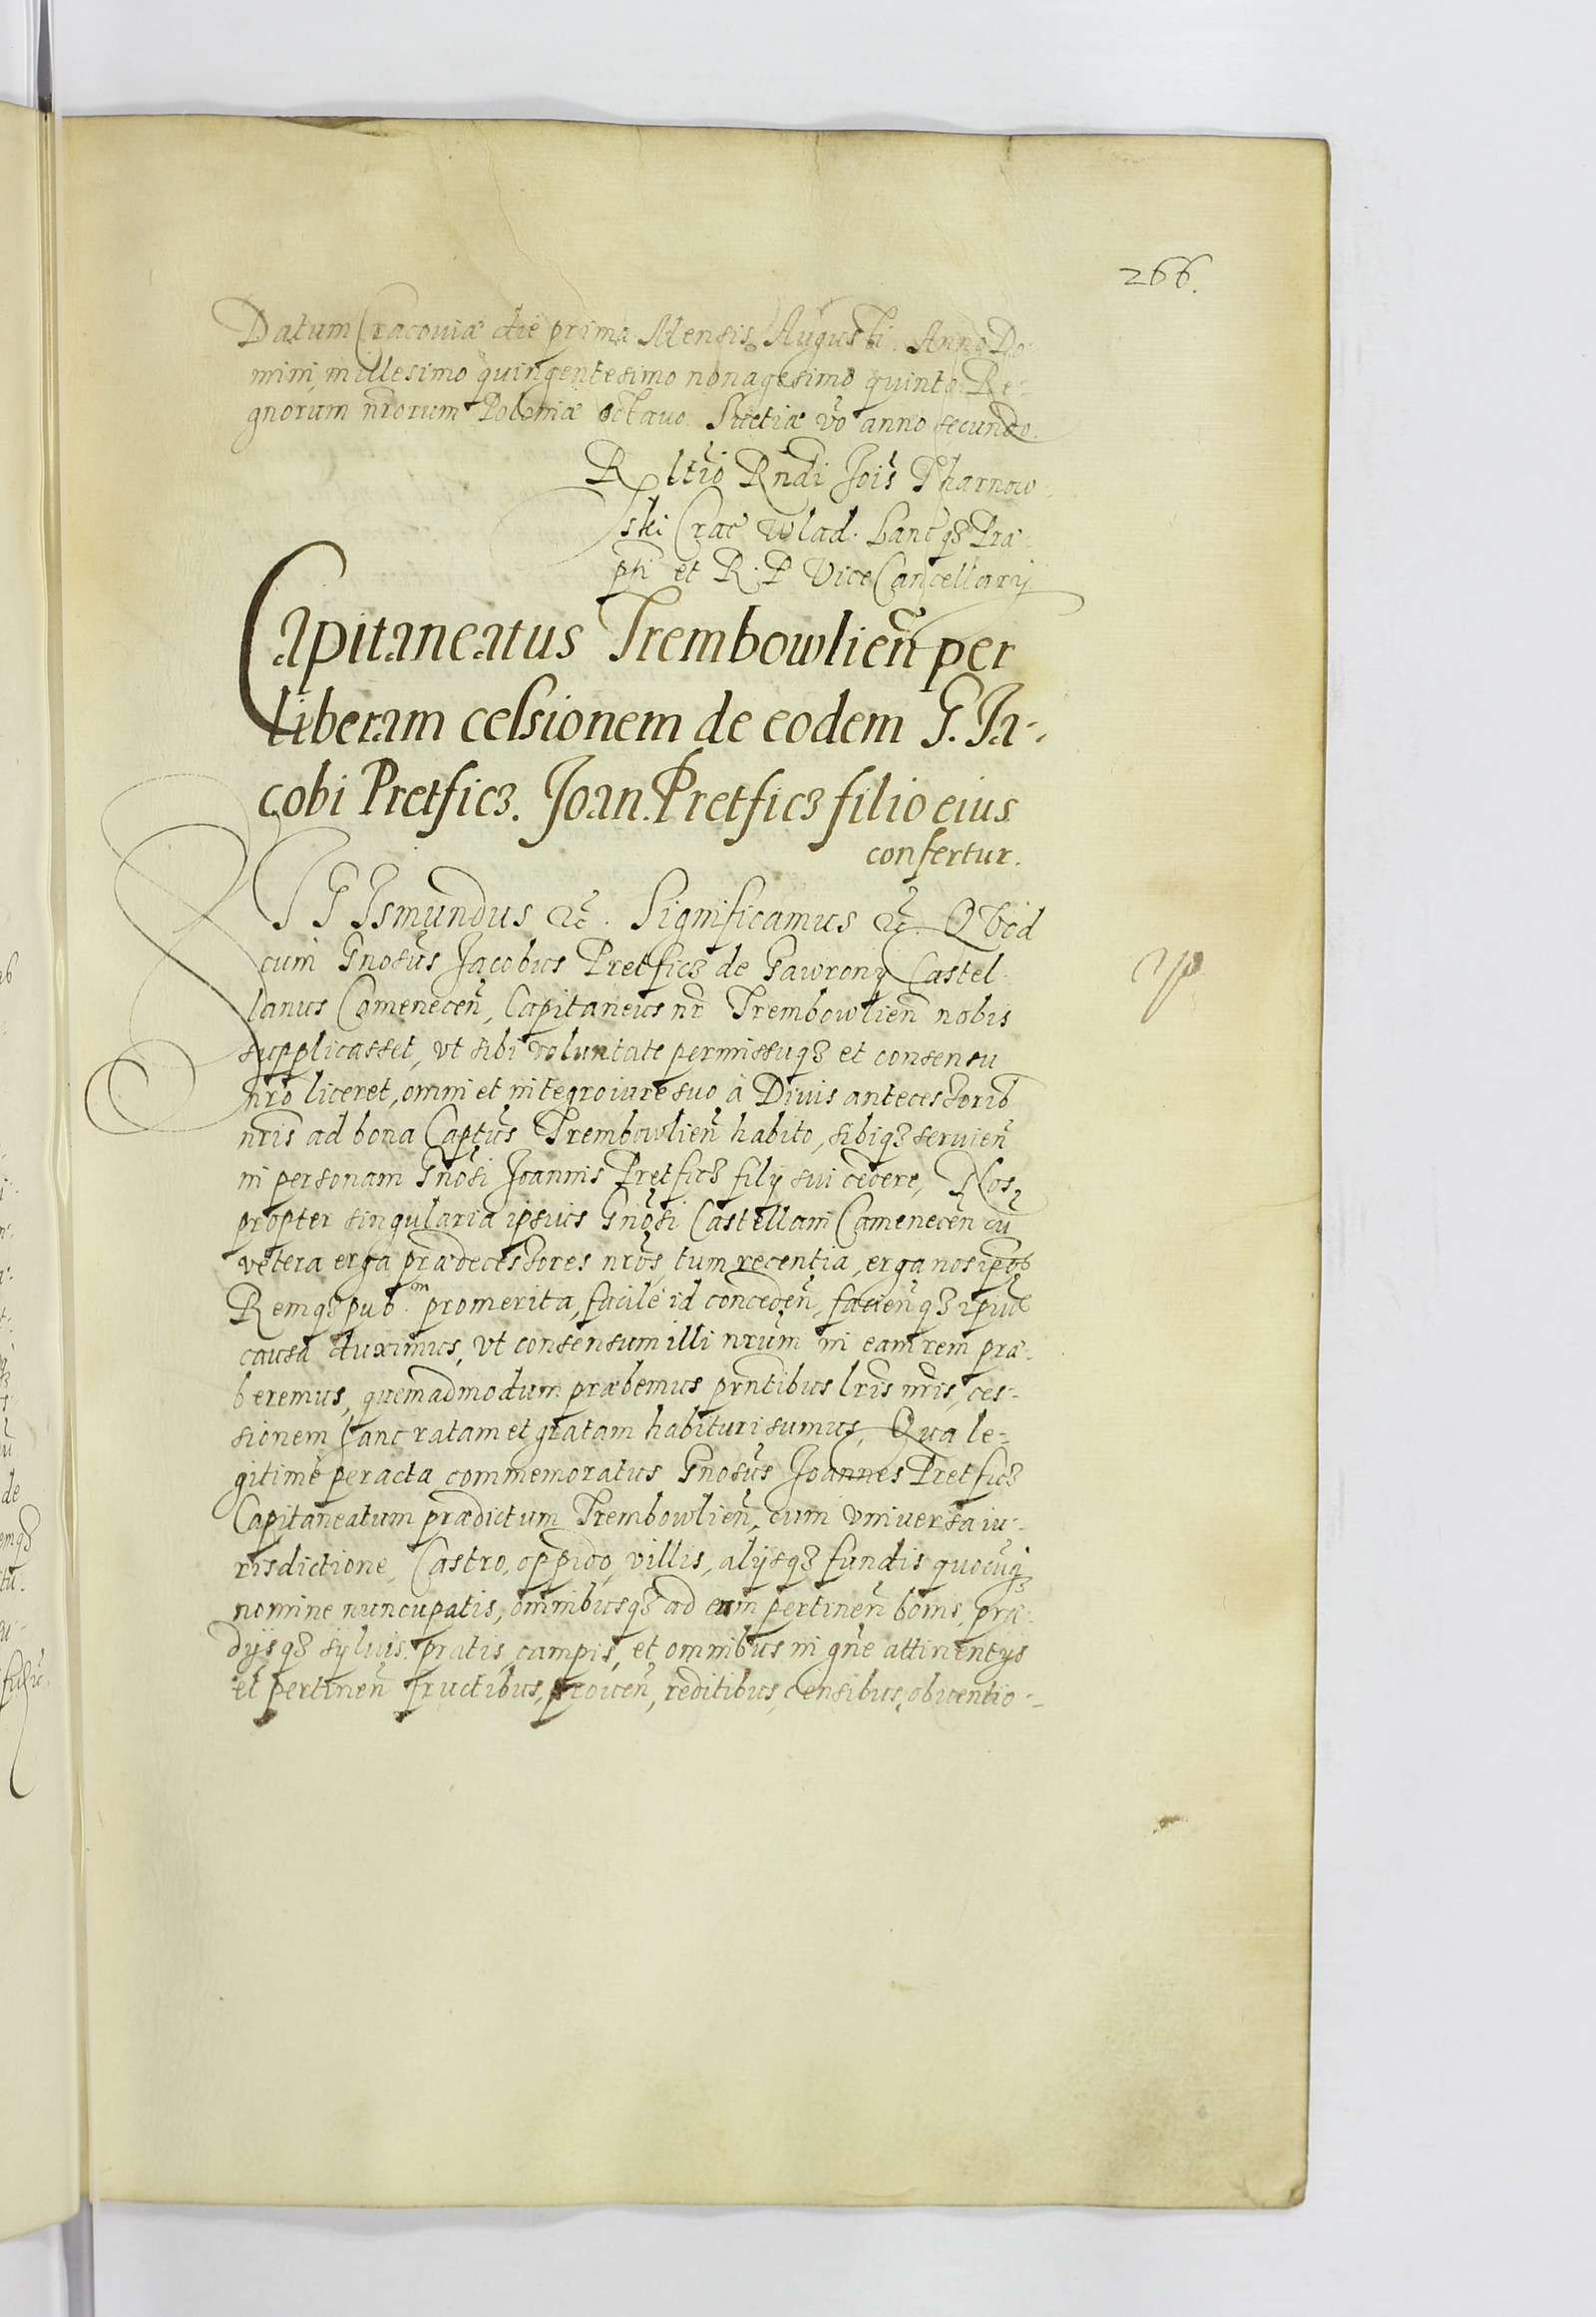 266.
Datum Cracouiæ die prima Mensis Augusti Anno Do-
mini millesimo quingentesimo nonagesimo quinto. Re-
gnorum nrorum Poloniæ octauo. Suetiæ vo anno secundo.
Rltio Rndi Jois Tharnow
ski Crac Wlad. Lanc qʒ Præ-
pti et R. P ViceCancellarij
Capitaneatus Trembowlien per
liberam cessionem de eodem G. Ja-
cobi Pretficz. Joan. Pretficz filio eius
confertur.
SIGIsmundus etc. Significamus etc. QVod
cum Gnosus Jacobus Pretficz de Gawrony Castel
lanus Camenecen, Capitaneus nr Trembowlien nobis
supplicasset, vt sibi voluntate permissuqʒ et consensu
nro liceret, omni et integro iure suo à Diuis antecessorib
nris ad bona Captus Trembowlien habito, sibiqʒ seruien
in personam Gnosi Joannis Pretficz filij sui cedere, Nos
propter singularia ipsius Gnosi Castellani Camenecen cu
vetera erga prædecessores nros, tum recentia, erga nos ipos
Remqʒ pub.m promerita, facile id conceden, facienqʒ ipius
causa duximus, vt consensum illi nrum in eam rem præ-
beremus, quemadmodum præbemus pntibus lris nris, ces-
sionem hanc ratam et gratam habituri sumus, Qua le-
gitime peracta commemoratus Gnosus Joannes Pretficz
Capitaneatum prædictum Trembowlien, cum vniuersa iu-
risdictione, Castro, oppido, villis, alijsqʒ fundis quocuqʒ
nomine nuncupatis, omnibusqʒ ad eum pertinen bonis, præ-
dijsqʒ syluis. pratis, campis, et omnibus in gne attinentijs
et pertinen fructibus, prouen, reditibus, censibus, obuentio-